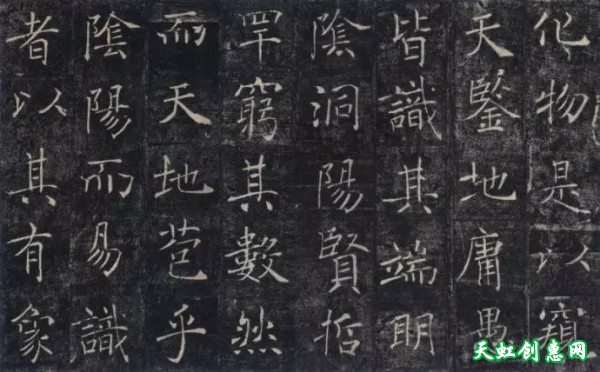 化物是以窺
天鑒地庸愚
皆識其端明
陰洞陽賢哲
罕窮其數然
而天地苞乎
陰陽而易識
者以其有象
天虹创惠网